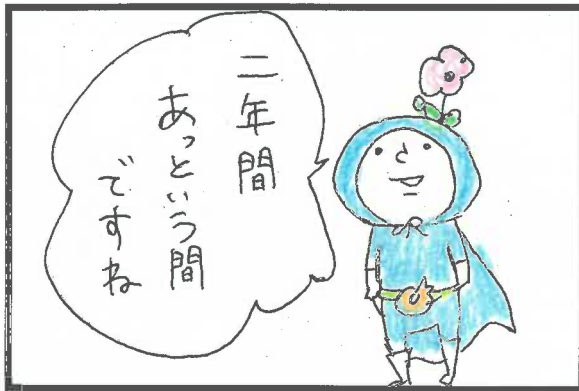 二年間
あっという間
ですね